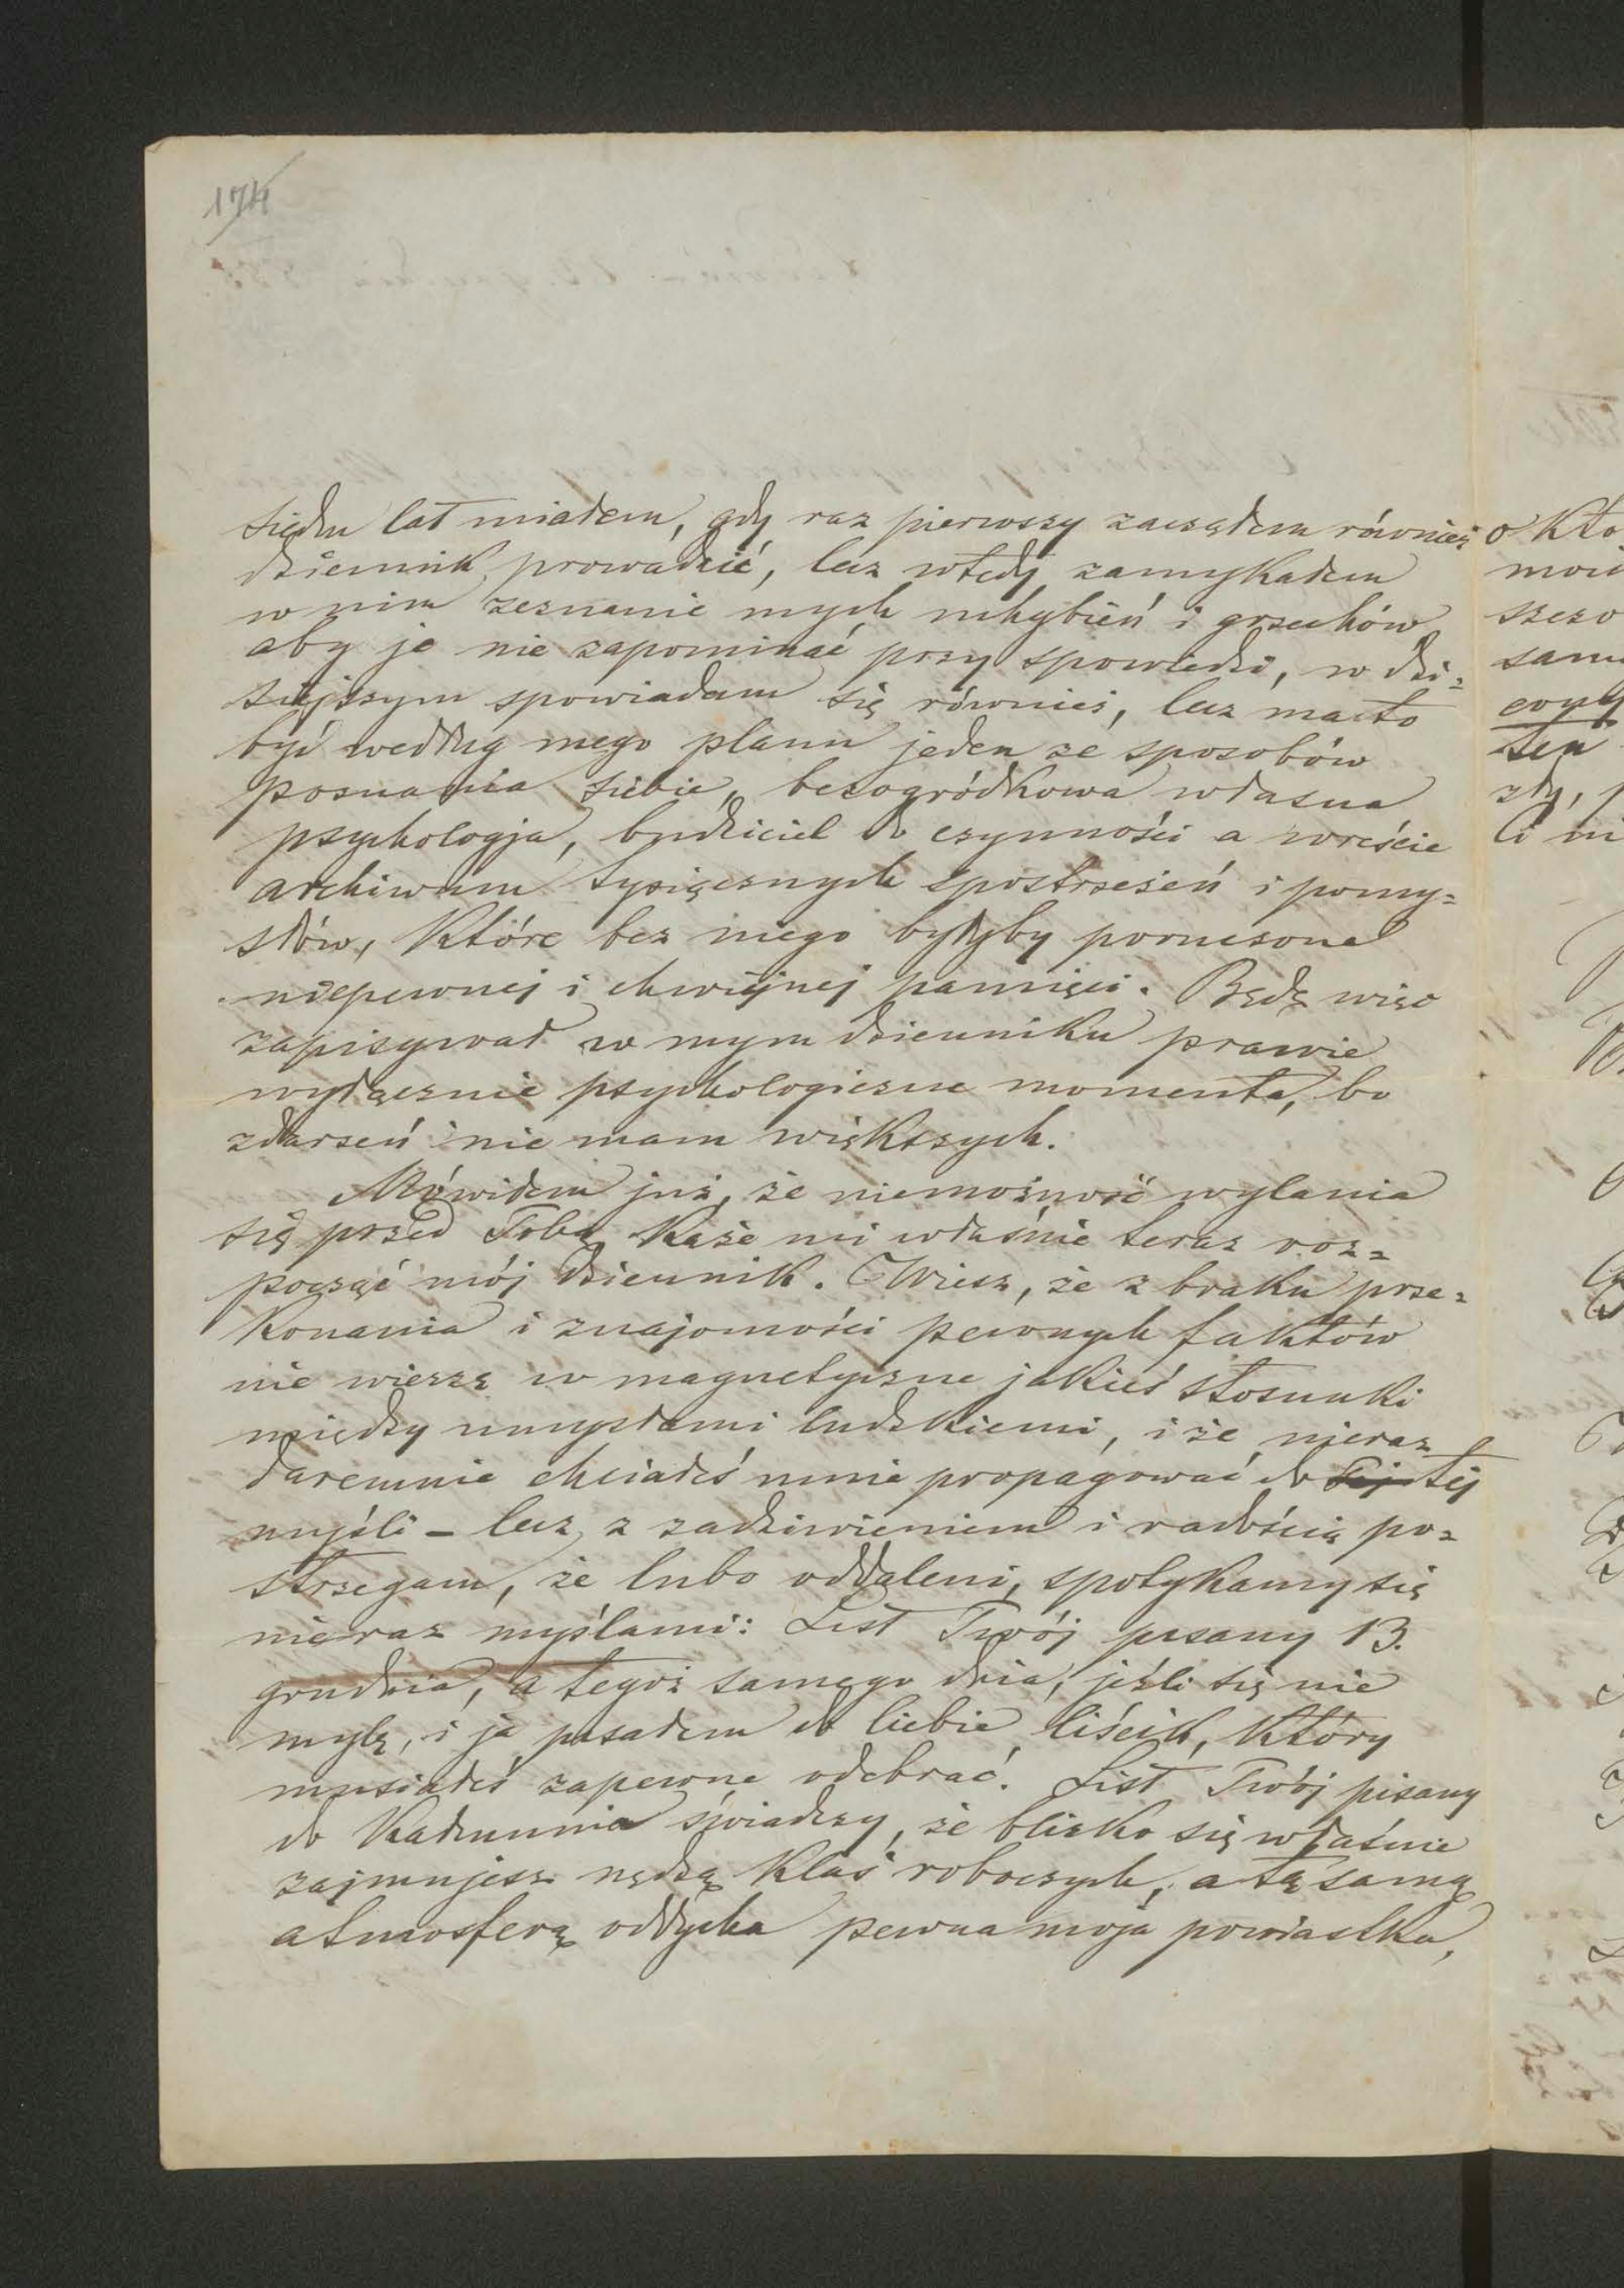 174
siedm lat miałem, gdy raz pierwszy zacząłem również
dziennik prowadzić, lecz wtedy zamykałem
w nim zeznanie mych uchybień i grzechów
aby je nie zapominać przy spowiedzi, w dzi=
siejszym spowiadam się również, lecz ma to
być według mego planu jeden ze sposobów
poznania siebie, bezogródkowa własna
psychologja, budziciel do czynności a wreście
archiwum tysięcznych spostrzeżeń i pomy=
słów, które bez niego byłyby poruczone
niepewnej i chwiejnej pamięci. Będę więc
zapisywał w mym dzienniku prawie
wyłącznie psychologiczne momenta, bo
zdarzeń nie mam większych.
Mówiłem już, że niemożność wylania
się przed Tobą każe mi właśnie teraz roz=
począć mój dziennik. Wiesz, że z braku prze=
konania i znajomości pewnych faktów
nie wierzę w magnetyczne jakieś stosunki
między umysłami ludzkiemi, i że nieraz
daremnie chciałeś mnie propagować do tej tej
myśli – lecz z zadziwieniem i radością po=
strzegam, że lubo oddaleni, spotykamy się
nieraz myślami: List Twój pisany 13.
grudnia, a tegoż samego dnia, jeśli się nie
mylę, i ja pisałem do Ciebie liścik, który
musiałeś zapewne odebrać. List Twój pisany
do Kadunia świadczy, że blizko się właśnie
zajmujesz nędzą klas roboczych, a tą samą
atmosferą oddycha pewna moja powiastka,